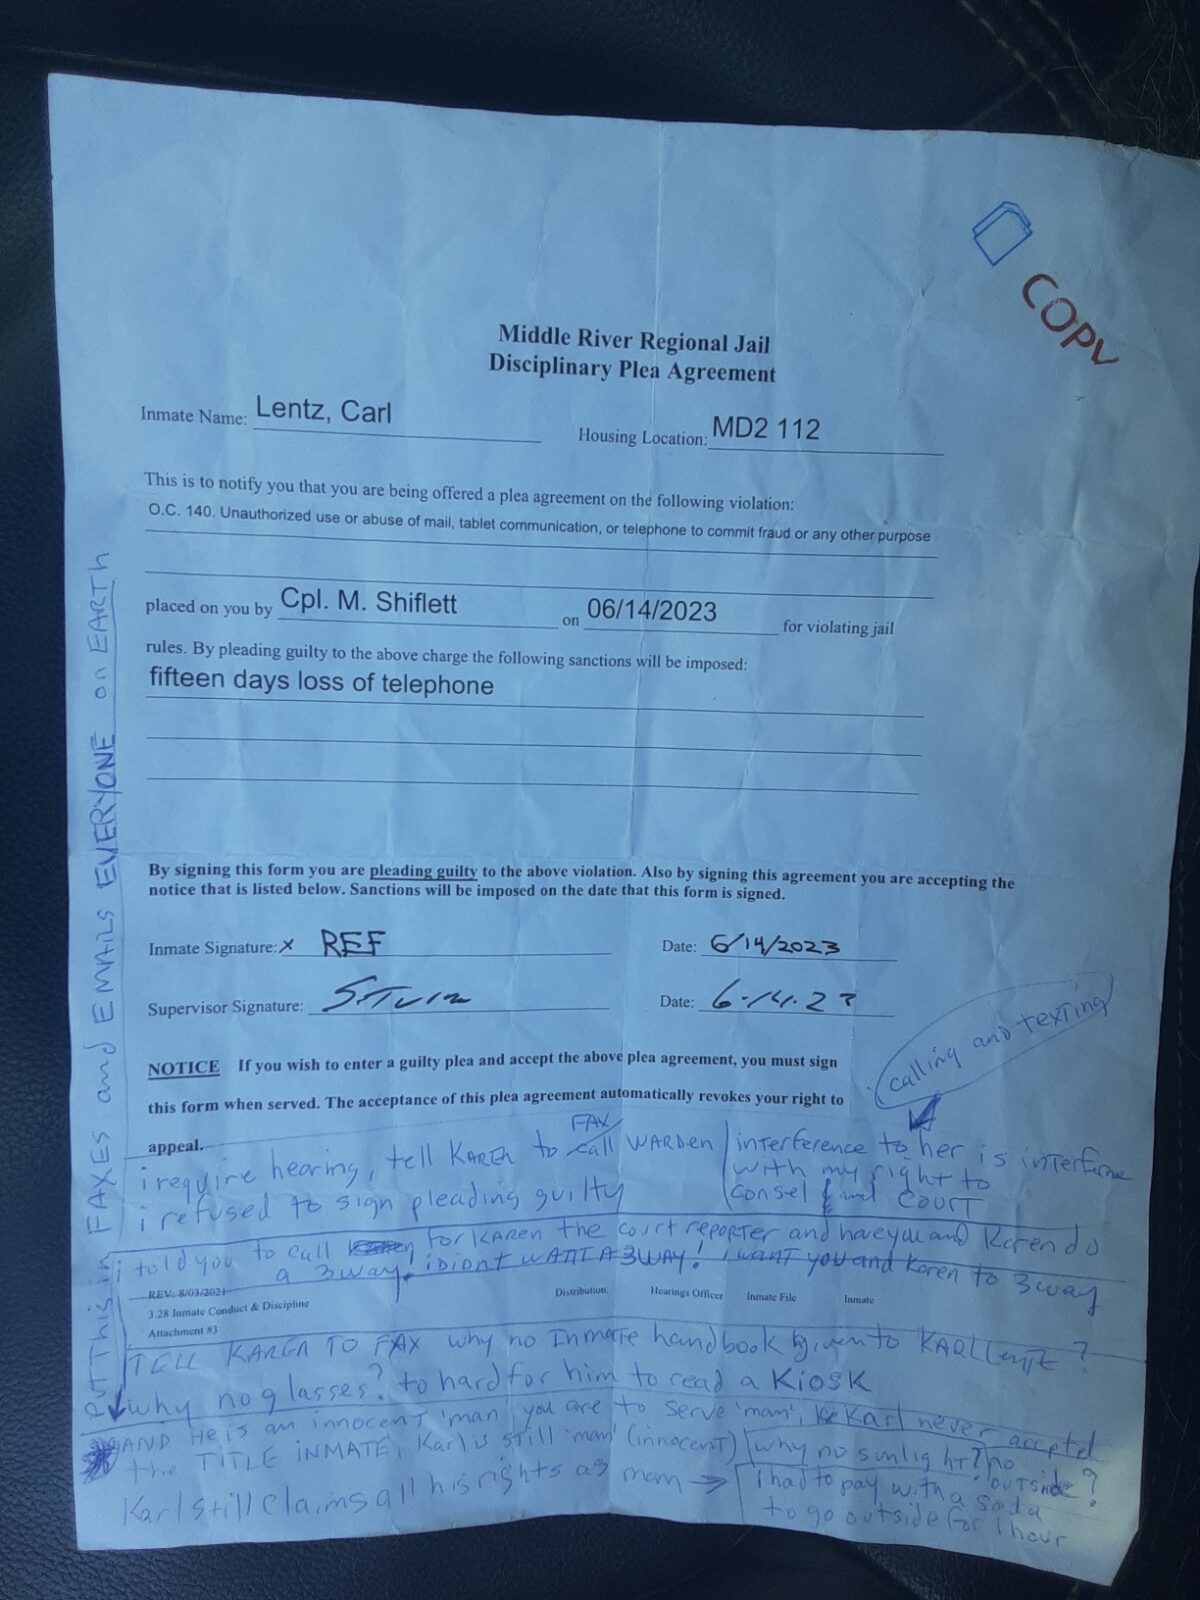 COPY
Middle River Regional Jail
Disciplinary Plea Agreement
Inmate Name: Lentz, Carl
Housing Location: MD2 112
This is to notify you that you are being offered a plea agreement on the following violation:
O.C. 140. Unauthorized use or abuse of mail, tablet communication, or telephone to commit fraud or any other purpose
placed on you by Cpl. M. Shiflett on 06/14/2023 for violating jail
rules. By pleading guilty to the above charge the following sanctions will be imposed:
fifteen days loss of telephone
By signing this form you are pleading guilty to the above violation. Also by signing this agreement you are accepting the
notice that is listed below. Sanctions will be imposed on the date that this form is signed.
Inmate Signature: x REF Date: 6/14/2023
Supervisor Signature: Date: 6-14-23
NOTICE If you wish to enter a guilty plea and accept the above plea agreement, you must sign
this form when served. The acceptance of this plea agreement automatically revokes your right to
appeal.
calling and texting
i require hearing, tell KAREN to call FAX WARDEN
i refused to sign pleading guilty
interference to her is interference
with my right to
consel and COURT
i told you to call for KAREN the court reporter and have you and Karen do
a 3way. i didnt WANT A 3WAY! i want you and Karen to 3way
REV. 8/03/2021
3.28 Inmate Conduct & Discipline
Attachment #3
Distribution: Hearings Officer Inmate File Inmate
TELL KAREN TO FAX why no Inmate handbook given to KARL LentZ?
why no glasses? to hard for him to read a KiOSK
AND He is an innocent 'man' you are to serve 'man', Karl never accepted
the TITLE INMATE, Karl is still 'man' (innocent)
Karl still claims all his rights as man →
why no sunlight? no
'outside'?
i had to pay with a soda
to go outside for 1 hour
PUT This in FAXES and EMAILS EVERYONE on EARTH